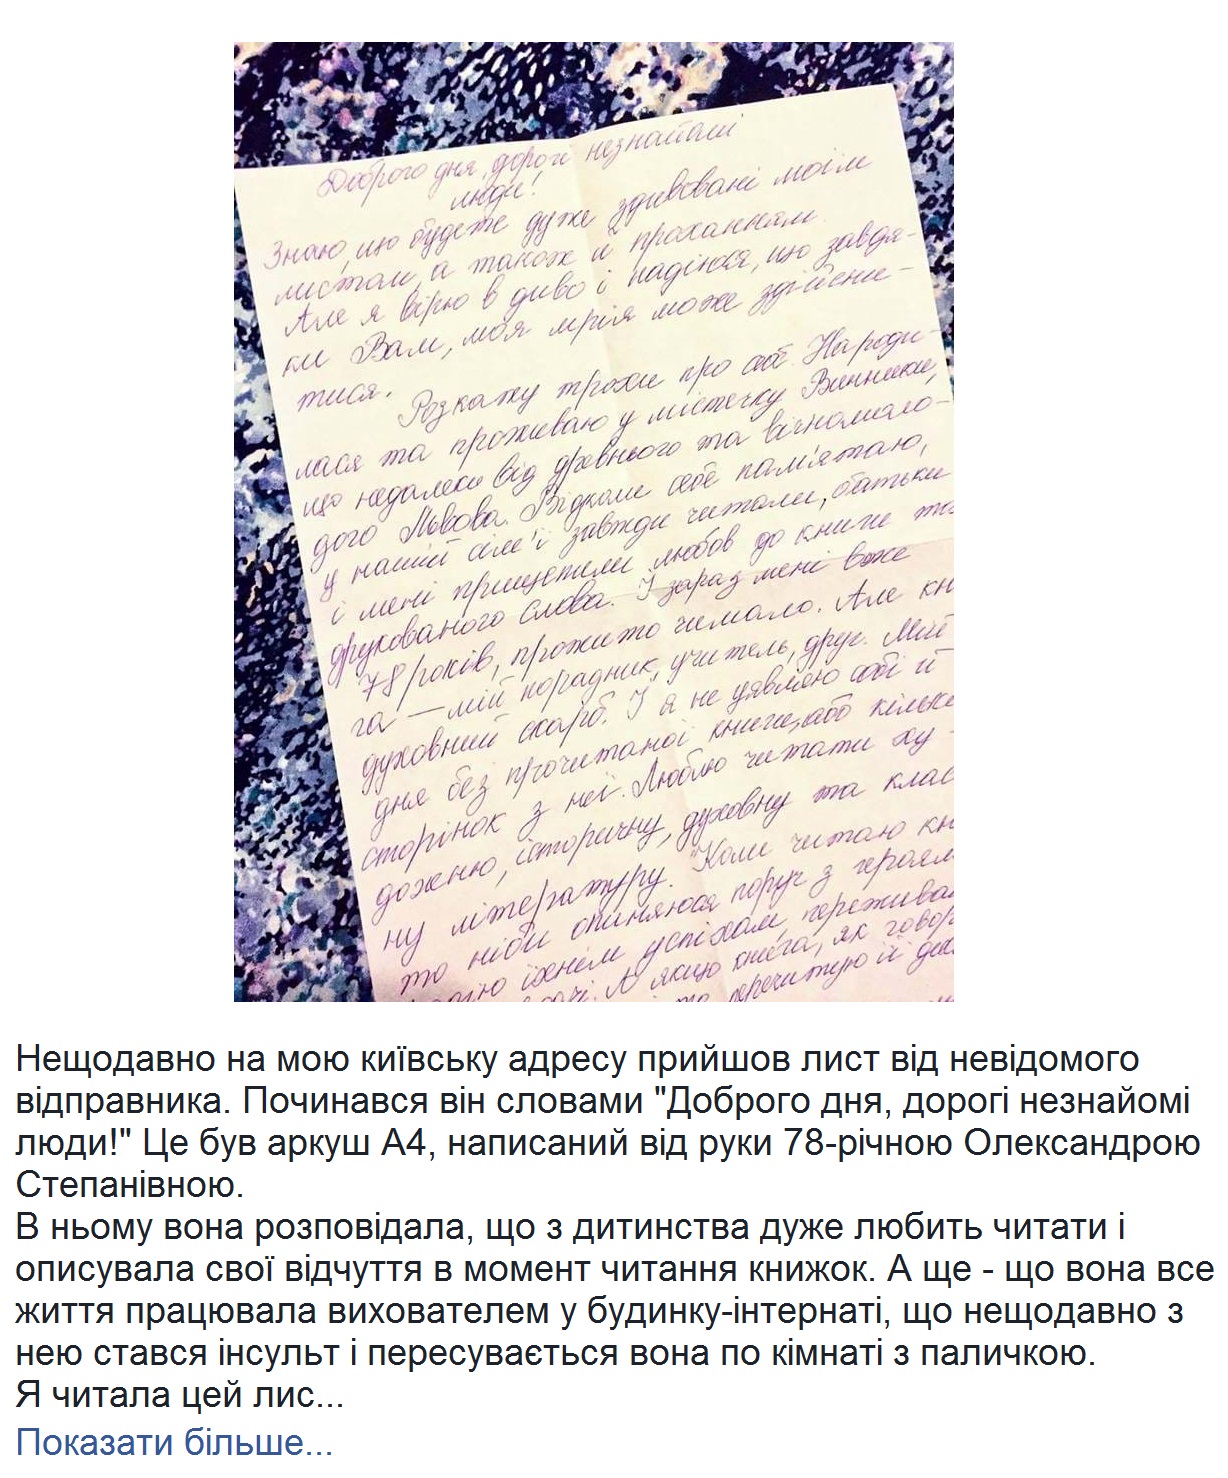 Доброго дня, дорогі незнайомі
люди!
Знаю, що будете дуже здивовані моїм
листом, а також й проханням.
Але я вірю в диво і надіюся, що завдя-
ки Вам, моя мрія може здійсни-
тися.
Розкажу трохи про себе. Народи-
лася та проживаю у містечку Винники,
що недалеко від древнього та вічномоло-
дого Львова. Відколи себе пам'ятаю,
у нашій сім'ї завжди читали, батьки
і мені прищепили любов до книги та
друкованого слова. І зараз мені вже
78 років, прожито чимало. Але кни
га — мій порадник, учитель, друг. Мій
духовний скарб. І я не уявляю собі й
дня без прочитаної книги, або кілька
сторінок з неї. Люблю читати ху-
дожню, історичну, духовну та клас
ну літературу. Коли читаю кн
то ніби опиняюся поруч з героям
їхнім успіхам, пережива
А якщо книга, як говор
перечитую її
Нещодавно на мою київську адресу прийшов лист від невідомого
відправника. Починався він словами "Доброго дня, дорогі незнайомі
люди!" Це був аркуш А4, написаний від руки 78-річною Олександрою
Степанівною.
В ньому вона розповідала, що з дитинства дуже любить читати і
описувала свої відчуття в момент читання книжок. А ще - що вона все
життя працювала вихователем у будинку-інтернаті, що нещодавно з
нею стався інсульт і пересувається вона по кімнаті з паличкою.
Я читала цей лис...
Показати більше...